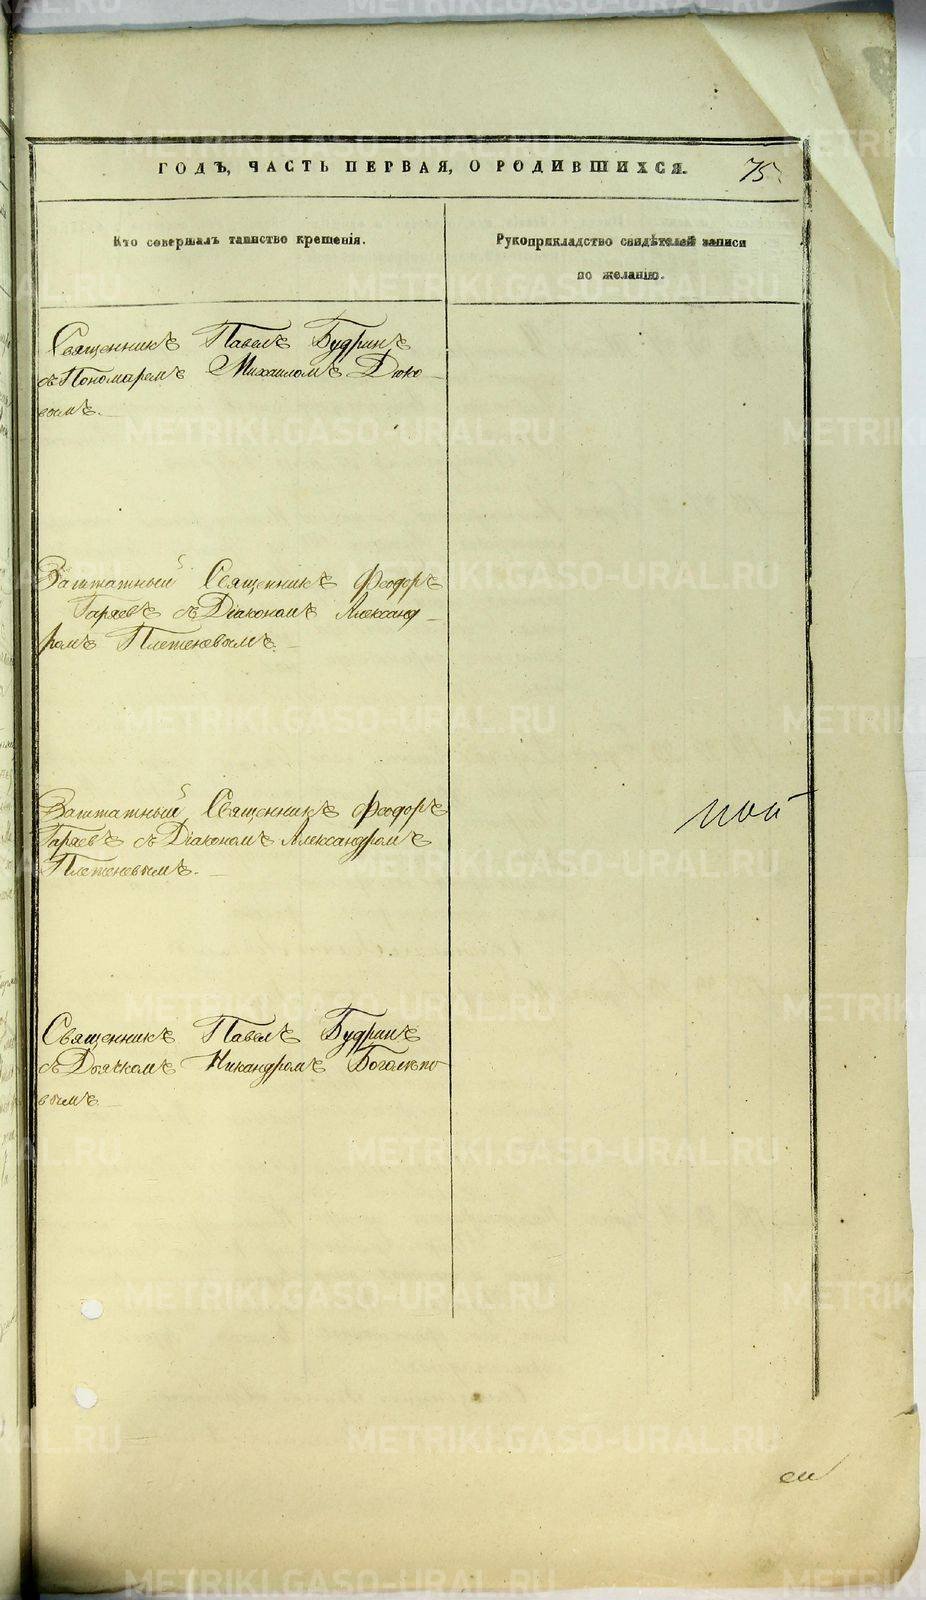 ГОДЪ, ЧАСТЬ ПЕРВАЯ, О РОДИВШИХСЯ.
75
Кто совершалъ таинство крещенія.
Рукоприкладство свидѣтелей записи
по желанію.
Священникъ Павелъ Будринъ
съ Пономаремъ Михаиломъ Дюко-
вымъ.
Заштатный Священникъ Ѳеодоръ
Гаряевъ съ Діакономъ Александ-
ромъ Плетеневымъ.
Заштатный Священникъ Ѳеодоръ
Гаряевъ съ Діакономъ Александромъ
Плетеневымъ.
ной
Священникъ Павелъ Будринъ
съ Дьячкомъ Никандромъ Боголѣпо
вымъ.
METRIKI.GASO-URAL.RU